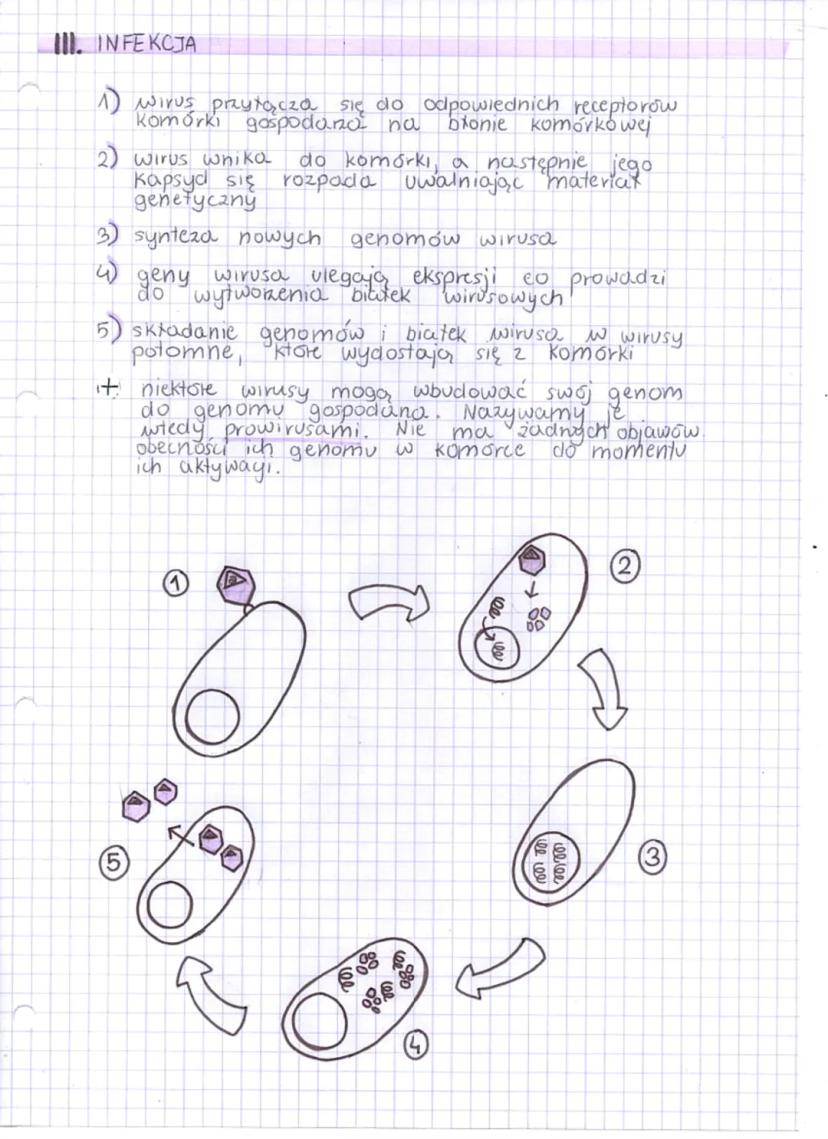 III. INFEKCJA
1) wirus przyłącza się do odpowiednich receptorów
komórki gospodarza na błonie komórkowej
2) wirus wnika do komórki, a następnie jego
kapsyd się rozpada uwalniając materiał
genetyczny
3) synteza nowych genomów wirusa
4) geny wirusa ulegają ekspresji co prowadzi
do wytworzenia białek wirusowych
5) składanie genomów i białek wirusa w wirusy
potomne, które wydostają się z komórki
+ niektóre wirusy mogą wbudować swój genom
do genomu gospodarza. Nazywamy je
wtedy prowirusami. Nie ma żadnych objawów
obecności ich genomu w komórce do momentu
ich aktywacji.
1
2
3
4
5